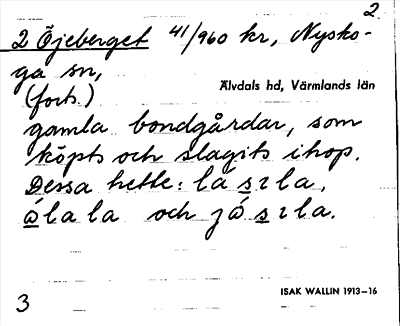 2
2 Öjeberget 41/960 kr, Nysko-
ga sn,
Älvdals hd, Värmlands län
(forts.)
gamla bondgårdar, som
köpts och slagits ihop.
Dessa hette: lá sɩla,
álala och jó sɩla.
ISAK WALLIN 1913–16
3